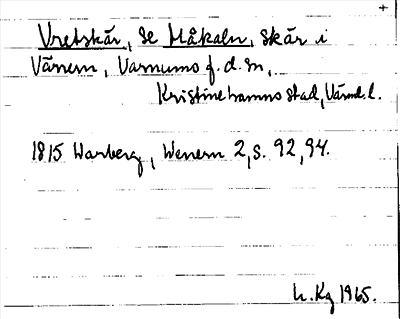 +
Vretskär, se Måkaln, skär i
Vänern, Varnums f.d. sn,
Kristinehamns stad, Värml. l.
1815 Warberg, Wenern 2, s. 92, 94.
L. Kg 1965.